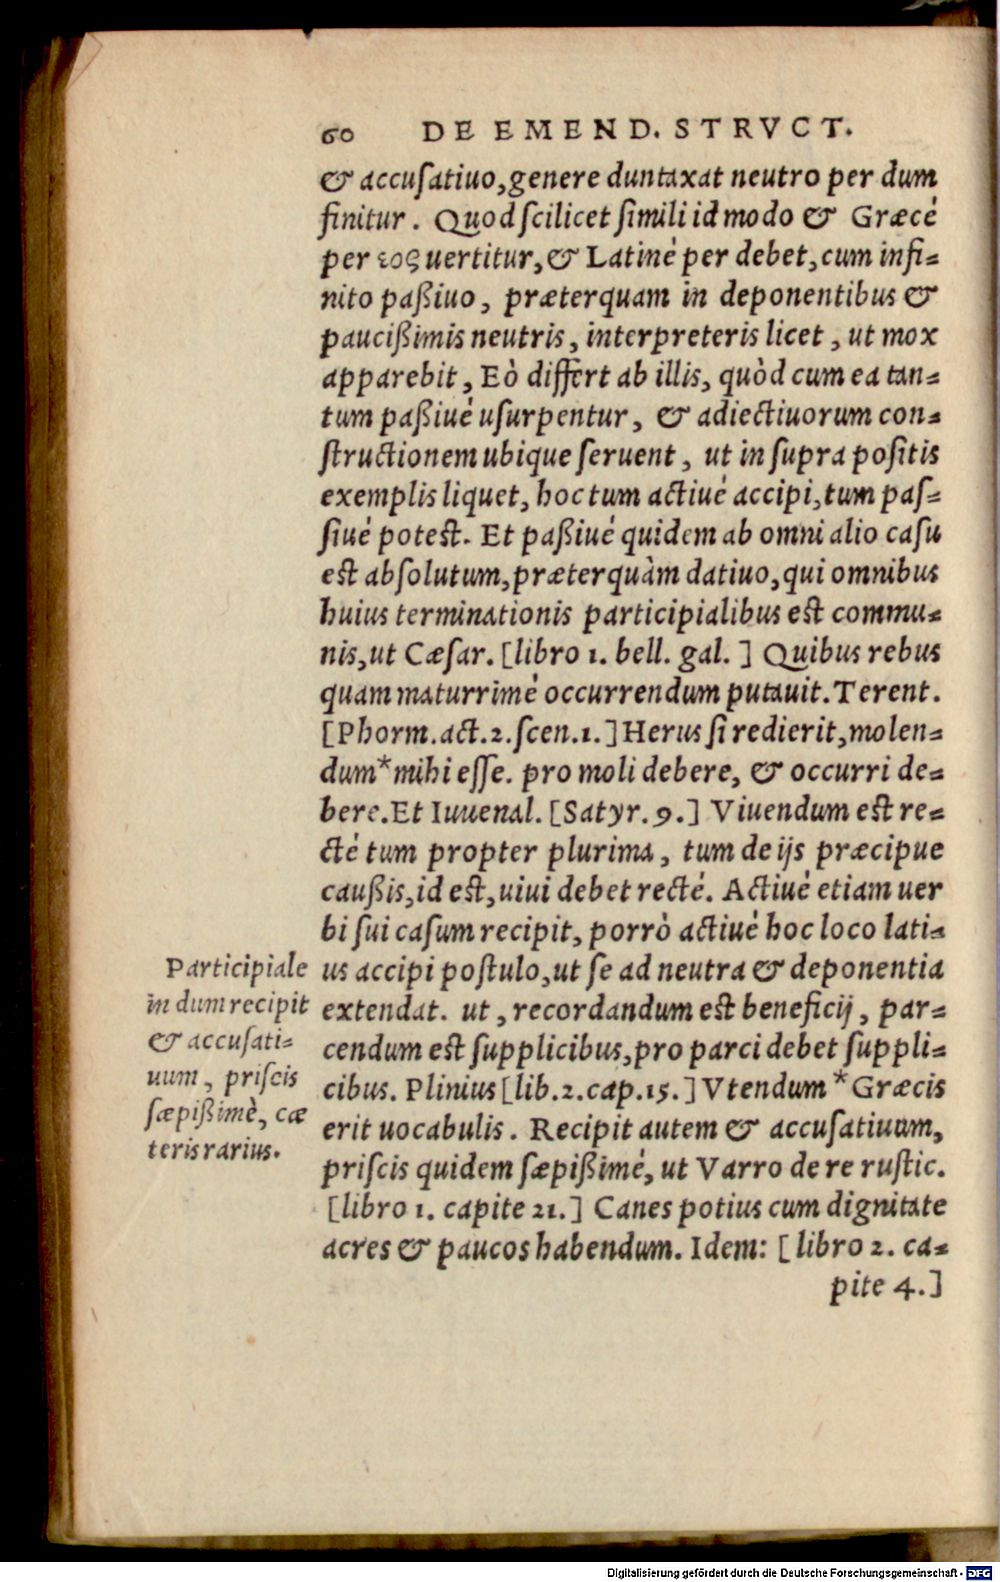 60 DE EMEND. STRVCT.
& accusatiuo, genere duntaxat neutro per dum
finitur. Quod scilicet simili id modo & Græcé
per εος uertitur, & Latinè per debet, cum infi=
nito paßiuo, præterquam in deponentibus &
paucißimis neutris, interpreteris licet, ut mox
apparebit, Eò differt ab illis, quòd cum ea tan=
tum paßiué usurpentur, & adiectiuorum con=
structionem ubique seruent, ut in supra positis
exemplis liquet, hoc tum actiué accipi, tum pas=
siué potest. Et paßiué quidem ab omni alio casu
est absolutum, præterquàm datiuo, qui omnibus
huius terminationis participialibus est commu=
nis, ut Cæsar. [libro 1. bell. gal.] Quibus rebus
quam maturrimé occurrendum putauit. Terent.
[Phorm. act. 2. scen. 1.] Herus si redierit, molen=
dum* mihi esse. pro moli debere, & occurri de=
bere. Et Iuuenal. [Satyr. 9.] Viuendum est re=
cté tum propter plurima, tum de ijs præcipue
caußis, id est, uiui debet recté. Actiué etiam uer
bi sui casum recipit, porrò actiué hoc loco lati=
us accipi postulo, ut se ad neutra & deponentia
extendat. ut, recordandum est beneficij, par=
cendum est supplicibus, pro parci debet suppli=
cibus. Plinius [lib. 2. cap. 15.] Vtendum * Græcis
erit uocabulis. Recipit autem & accusatiuum,
priscis quidem sæpißimé, ut Varro de re rustic.
[libro 1. capite 21.] Canes potius cum dignitate
acres & paucos habendum. Idem: [libro 2. ca=
pite 4.]
Participiale
in dum recipit
& accusati=
uum, priscis
sæpißimè, cæ
teris rarius.
Digitalisierung gefördert durch die Deutsche Forschungsgemeinschaft - DFG